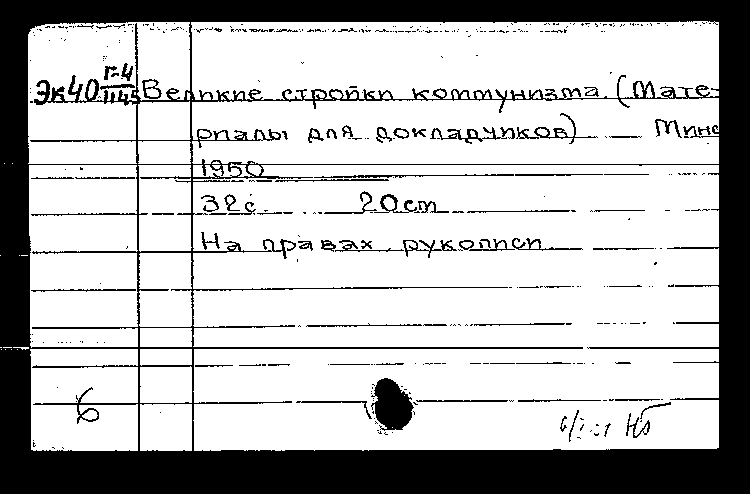 Эк40 Г-4 Великие стройки коммунизма. (Мате-
риалы для докладчиков) Минс
1950
32с. 20см
На правах рукописи
6
Нб